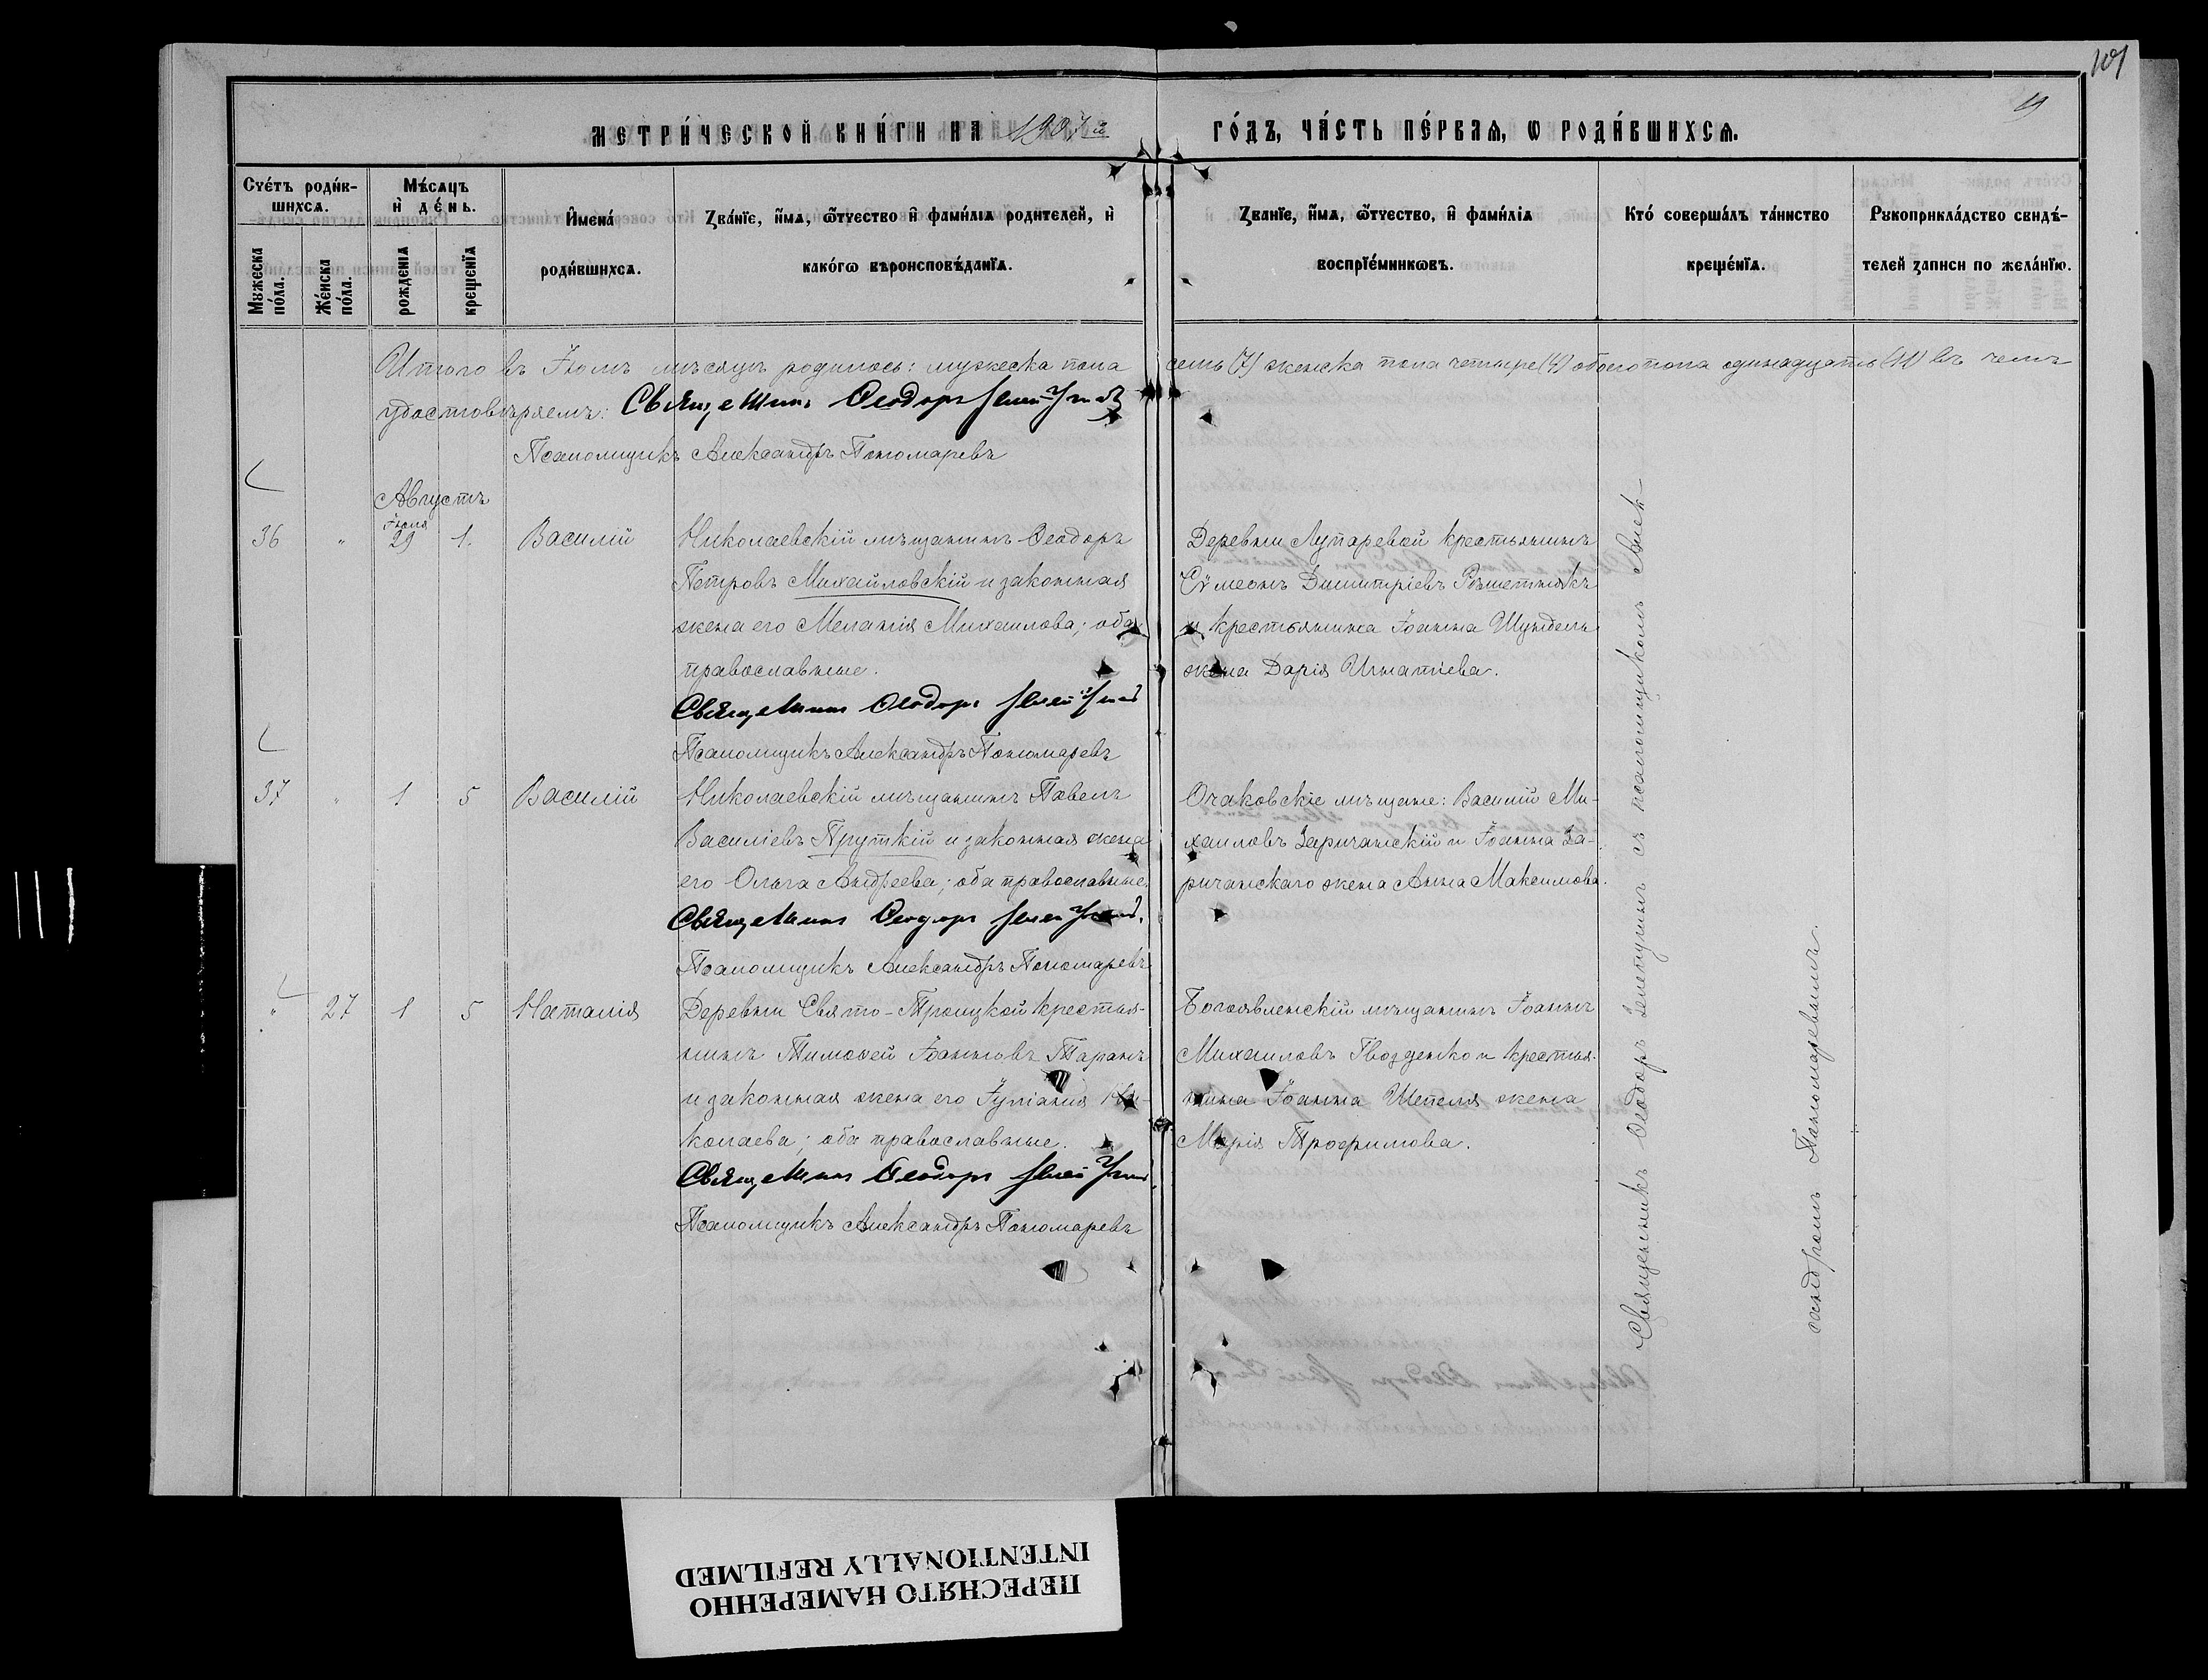 109
19
МЕТРИ́ЧЕСКОЙ КНИ́ГИ НА 1907й ГО́ДЪ, ЧА́СТЬ ПЕ́РВАЯ, Ѡ РОДИ́ВШИХСѦ.
Счетъ роди́в-
шихсѧ.
Мꙋжеска по́ла.
Же́нска по́ла.
Мѣ́сѧцъ и де́нь.
рожденїѧ
крещенїѧ
Имена́ роди́вшихсѧ.
Зва́нїе, имѧ, ѻтчество и фами́лїѧ родителей, и
како́гѡ вѣроисповѣ́данїѧ.
Званїе, имѧ, ѻтчество, и фами́лїѧ
воспрїе́мникѡвъ.
Кто́ соверша́лъ та́инство
креще́нїѧ.
Рꙋкоприкла́дство свидѣ́-
телей записи по жела́нїю.
Итого въ Іюлѣ мѣсяцѣ родилось: мужеска пола семь (7) женска пола четыре (4) обоего пола одинадцать (11) въ чемъ
удостовѣряемъ: Священникъ Ѳеодоръ
Псаломщикъ Александръ Пономаревъ
Августъ
36 " Іюля 29 1. Василій
Николаевскій мѣщанинъ Ѳеодоръ
Петровъ Михайловскій и законная
жена его Меланія Михаилова; оба
православные.
Священникъ Ѳеодоръ
Псаломщикъ Александръ Пономаревъ
Деревни Лупаревой крестьянинъ
Сѵмеонъ Димитріевъ Рѣшетнякъ
и крестьянина Іоанна Шундель
жена Дарія Игнатіева.
37 " 1 5 Василій
Николаевскій мѣщанинъ Павелъ
Василіевъ Пруткій и законная жена
его Ольга Андреева; оба православные.
Священникъ Ѳеодоръ
Псаломщикъ Александръ Пономаревъ
Очаковскіе мѣщане: Василій Ми-
хаиловъ Заричанскій и Іоанна За-
ричанскаго жена Анна Максимова.
" 27 1 5 Наталія
Деревни Свято-Троицкой крестья-
нинъ Тимоѳей Іоанновъ Таранъ
и законная жена его Іуліанія Ни-
колаева; оба православные.
Священникъ Ѳеодоръ
Псаломщикъ Александръ Пономаревъ
Богоявленскій мѣщанинъ Іоаннъ
Михаиловъ Гвозденко и крестья-
нина Іоанна Шепеля жена
Марія Трофимова.
Священникъ Ѳеодоръ съ псаломщикомъ Алек-
сандромъ Пономаревымъ.
ПЕРЕСНЯТО НАМЕРЕННО
INTENTIONALLY REFILMED